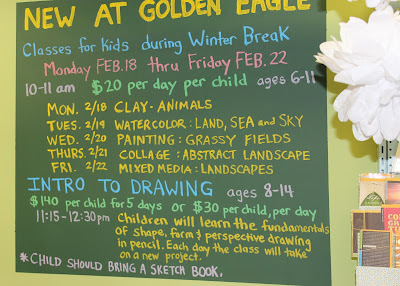 NEW AT GOLDEN EAGLE
Classes for Kids during Winter Break
Monday FEB.18 thru Friday FEB.22
10-11 am $20 per day per child ages 6-11
MON. 2/18 CLAY-ANIMALS
TUES. 2/19 WATERCOLOR: LAND, SEA and SKY
WED. 2/20 PAINTING: GRASSY FIELDS
THURS. 2/21 COLLAGE: ABSTRACT LANDSCAPE
FRI. 2/22 MIXED MEDIA: LANDSCAPES
INTRO TO DRAWING ages 8-14
$140 per child for 5 days or $30 per child, per day
11:15-12:30pm Children will learn the fundamentals
of shape, form & perspective drawing
in pencil. Each day the class will take
on a new project.
*CHILD SHOULD BRING A SKETCH BOOK.